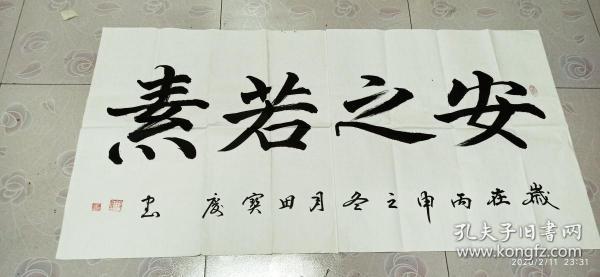 安之若素
歲在丙申之冬月田寶慶書
孔夫子旧书网
www.kongfz.com
2020/2/11 23:31